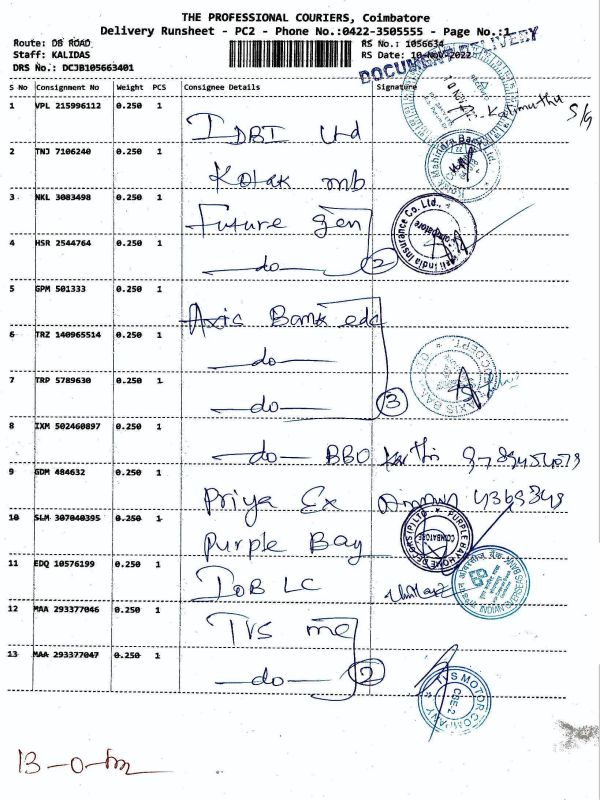 THE PROFESSIONAL COURIERS, Coimbatore
Delivery Runsheet - PC2 - Phone No.:0422-3505555 - Page No.:1
Route: DB ROAD
Staff: KALIDAS
DRS No.: DCJB105663401
RS No.: 1056634
RS Date: 10-Nov-2022
DOCUMENT DELIVERY
S No Consignment No Weight PCS Consignee Details Signature
1 VPL 215996112 0.250 1 IDBI Ltd
2 TNJ 7106240 0.250 1 Kotak mb
Kotak Mahindra Bank Ltd.
3 NKL 3083498 0.250 1 Future gen
4 HSR 2544764 0.250 1 do 2
India Insurance Co. Ltd.,
5 GPM 501333 0.250 1 Axis Bank edc
6 TRZ 140965514 0.250 1 do
7 TRP 5789630 0.250 1 do 3
AXIS BANK
8 IXM 502460897 0.250 1 do BBO
9 GDM 484632 0.250 1 Priya Ex
10 SLM 307040395 0.250 1 Purple Bay
PURPLE BAY
COIMBATORE
11 EDQ 10576199 0.250 1 IOB LC
INDIAN OVERSEAS
12 MAA 293377046 0.250 1 TVS me
13 MAA 293377047 0.250 1 do 2
TVS MOTOR COMPANY
CBE-2